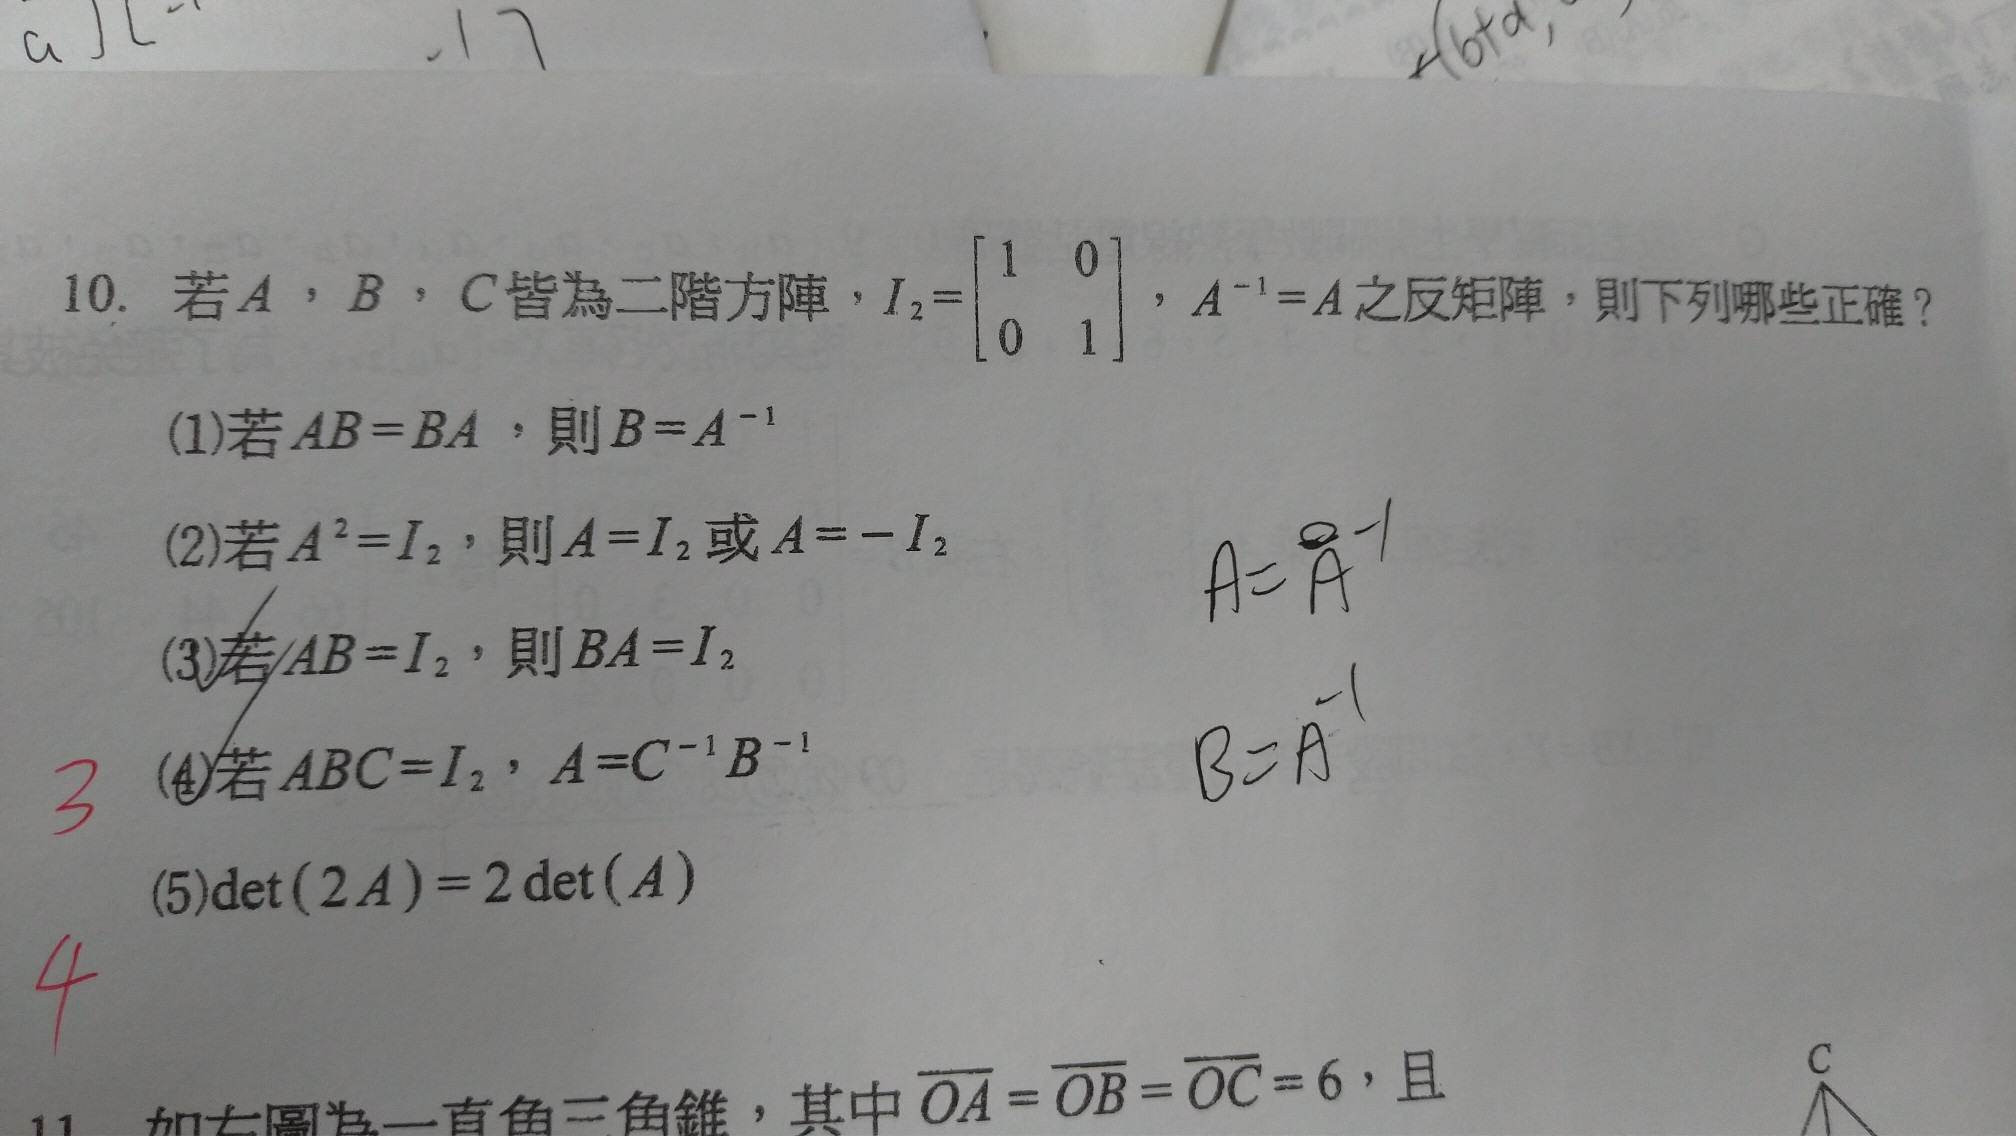 a ] [ -1
-17
-(b+d,
10. 若A,B,C皆為二階方陣,I₂=[1 0
0 1],A⁻¹=A之反矩陣,則下列哪些正確?
(1)若AB=BA,則B=A⁻¹
(2)若A²=I₂,則A=I₂或A=-I₂
A=A⁻¹
(3)若AB=I₂,則BA=I₂
B=A⁻¹
3
(4)若ABC=I₂, A=C⁻¹B⁻¹
(5)det(2A)=2det(A)
4
C
11. 如右圖為一直角三角錐,其中OA=OB=OC=6,且